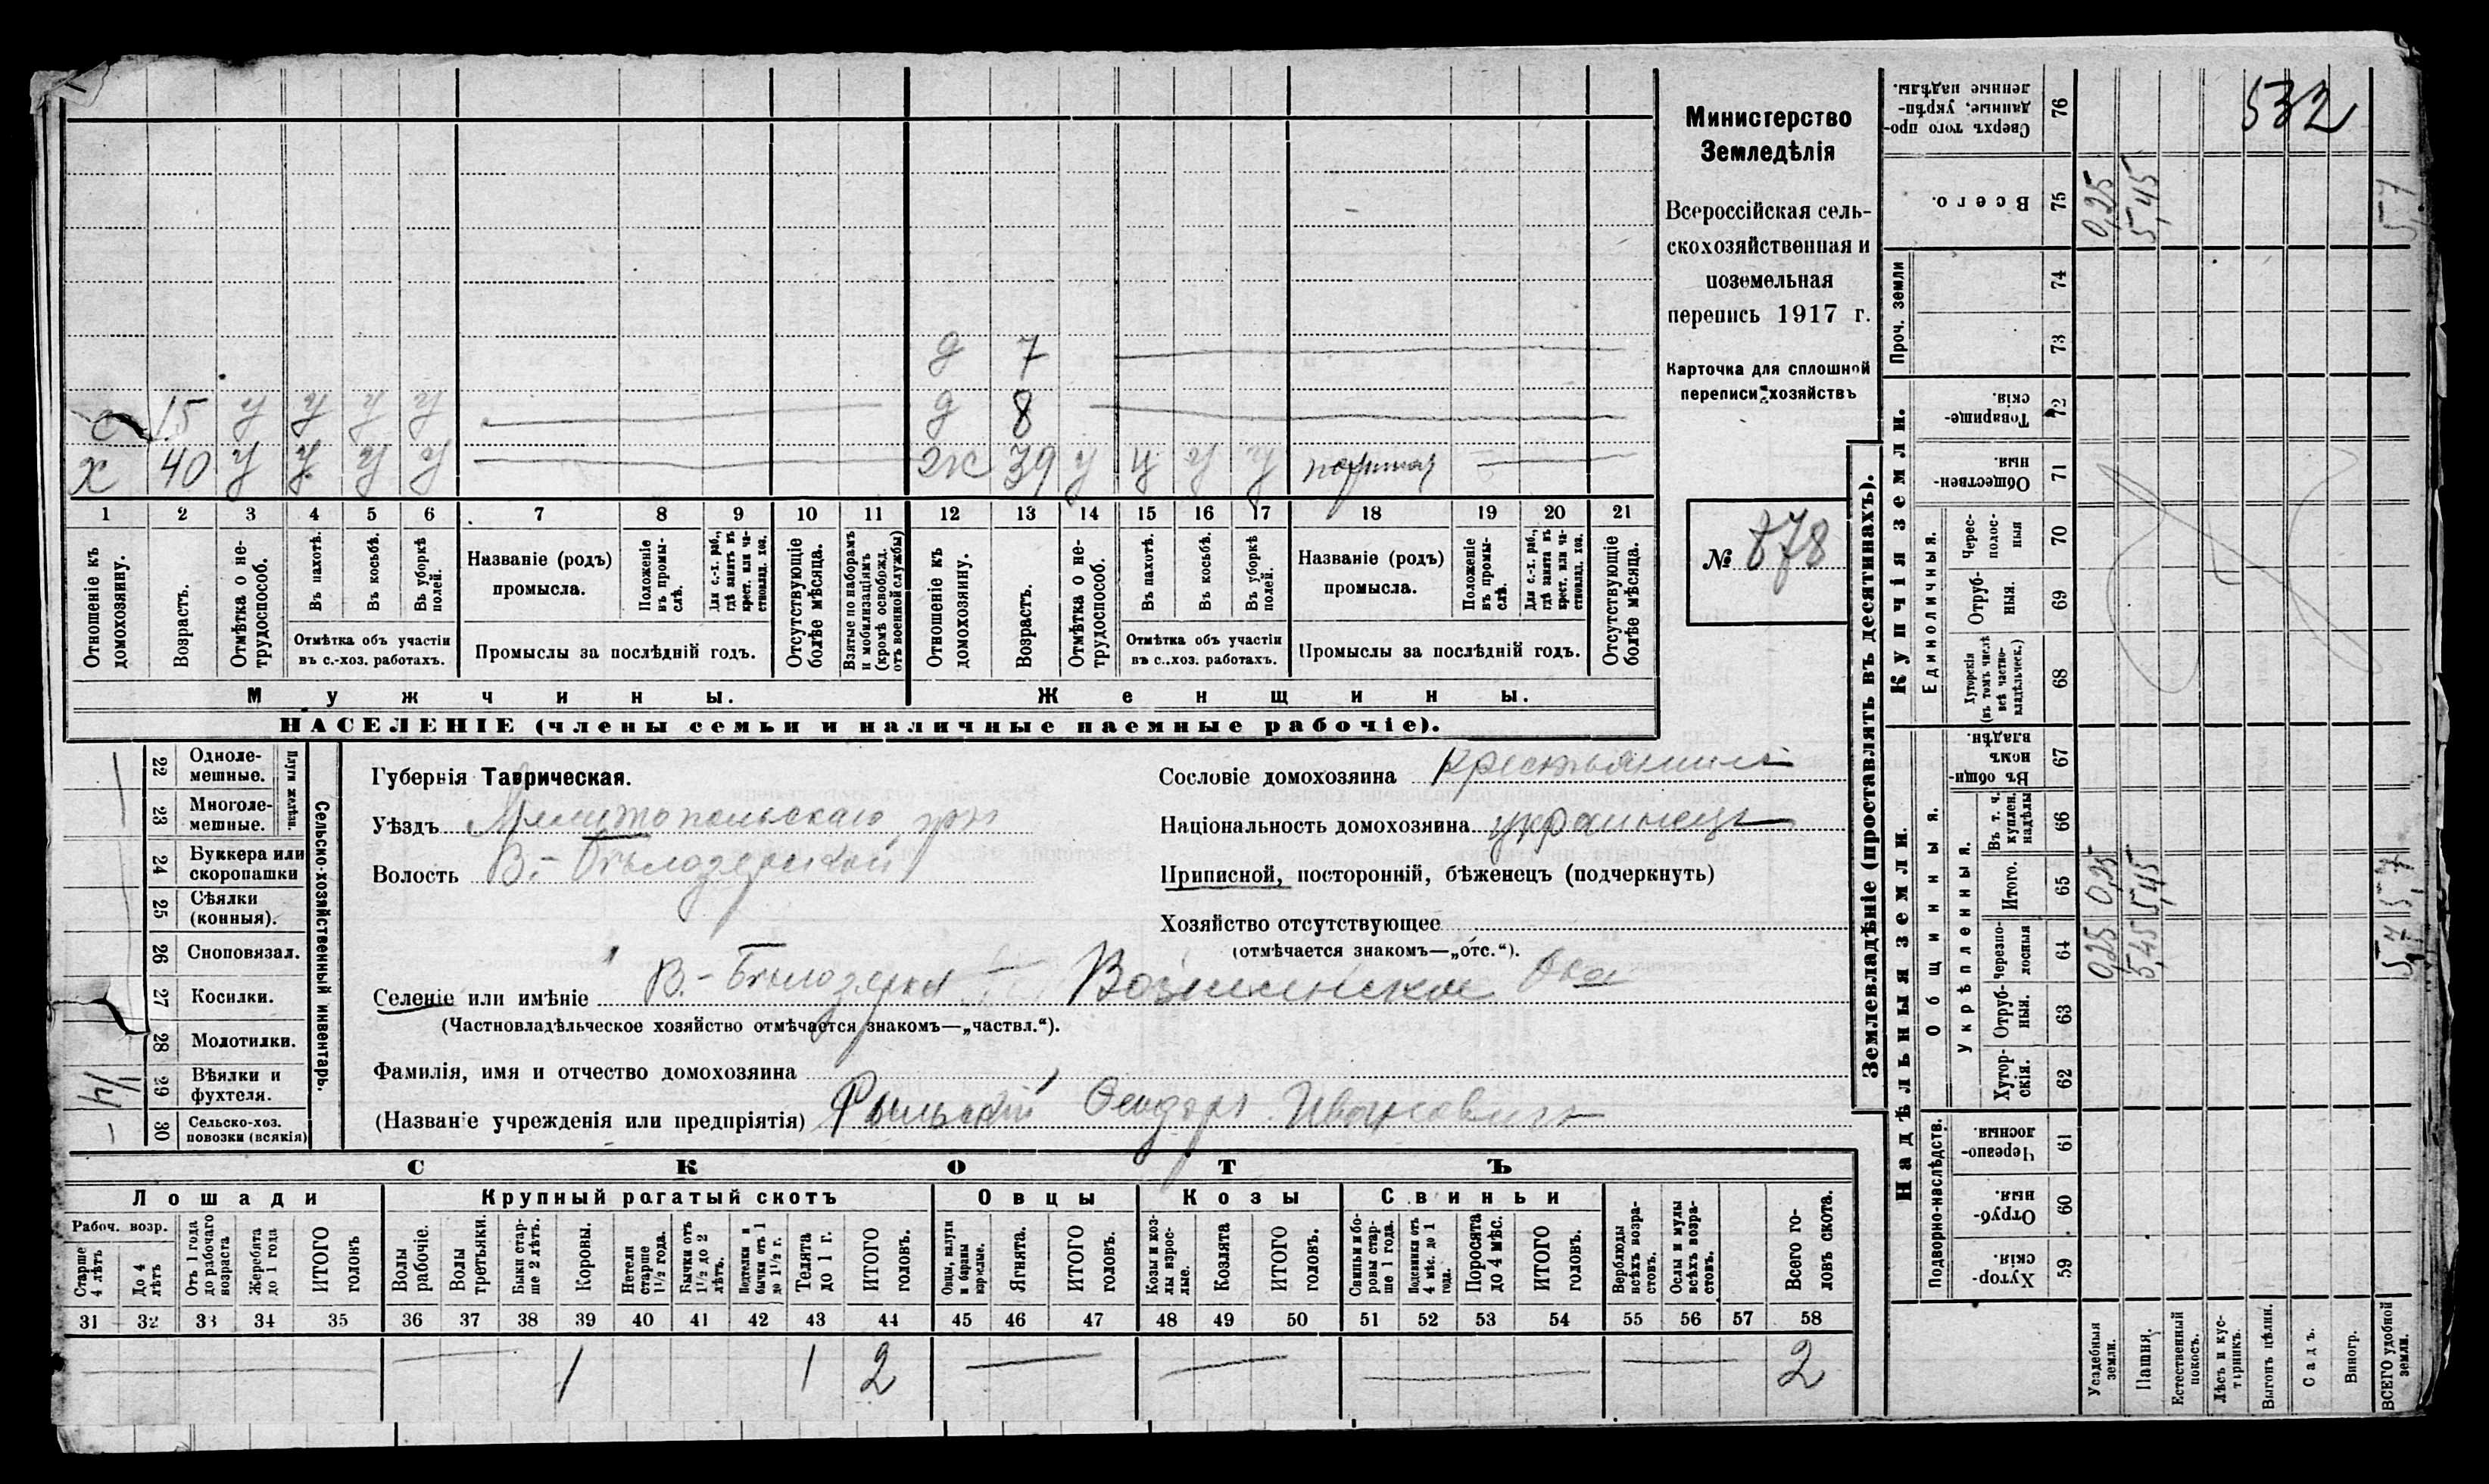 532
Министерство
Земледѣлія
Всероссійская сель-
скохозяйственная и
поземельная
перепись 1917 г.
Карточка для сплошной
переписи хозяйствъ
№ 878
д 7
д 8
с 15
х 40
ж 39
1 2 3 4 5 6 7 8 9 10 11 12 13 14 15 16 17 18 19 20 21
Отношеніе къ домохозяину.
Возрастъ.
Отмѣтка о не-трудоспособ.
Въ пахотѣ.
Въ косьбѣ.
Въ уборкѣ полей.
Отмѣтка объ участіи
въ с.-хоз. работахъ.
Названіе (родъ)
промысла.
Положеніе въ промы-слѣ.
Для с.-х. раб., гдѣ занятъ въ крест. или ча-стновлад. хоз.
Промыслы за послѣдній годъ.
Отсутствующіе болѣе мѣсяца.
Взятые по наборамъ и мобилизаціямъ (кромѣ освобожд. отъ военной службы)
Отношеніе къ домохозяину.
Возрастъ.
Отмѣтка о не-трудоспособ.
Въ пахотѣ.
Въ косьбѣ.
Въ уборкѣ полей.
Отмѣтка объ участіи
въ с..хоз. работахъ.
Названіе (родъ)
промысла.
Положеніе въ промы-слѣ.
Для с.-х. раб., гдѣ занята въ крест. или ча-стновлад. хоз.
Промыслы за послѣдній годъ.
Отсутствующіе болѣе мѣсяца.
Мужчины.
Женщины.
НАСЕЛЕНІЕ (члены семьи и наличные наемные рабочіе).
Сельско-хозяйственный инвентарь.
Плуги желѣзн.
22 Одноле-мешные.
23 Многоле-мешные.
24 Буккера или скоропашки
25 Сѣялки (конныя).
26 Сноповязал.
27 Косилки.
28 Молотилки.
29 Вѣялки и фухтеля. 1/4
30 Сельско-хоз. повозки (всякія) –
Губернія Таврическая.
Уѣздъ Мелитопольскаго
Волость В.-Бѣлозерской
Селеніе или имѣніе В.-Бѣлозерка
(Частновладѣльческое хозяйство отмѣчается знакомъ—„частвл.“).
Фамилія, имя и отчество домохозяина
(Названіе учрежденія или предпріятія) Рыльскій Ѳеодоръ Ивановичъ
Сословіе домохозяина крестьянинъ
Національность домохозяина украинецъ
Приписной, посторонній, бѣженецъ (подчеркнуть)
Хозяйство отсутствующее
(отмѣчается знакомъ—„отс.“).
СКОТЪ
Лошади
Крупный рогатый скотъ
Овцы
Козы
Свиньи
Рабоч. возр.
Старше 4 лѣтъ
До 4 лѣтъ
Отъ 1 года до рабочаго возраста
Жеребята до 1 года
ИТОГО головъ
Волы рабочіе.
Волы третьяки.
Быки стар-ше 2 лѣтъ.
Коровы.
Нетели старше 1½ года.
Бычки отъ 1½ до 2 лѣтъ.
Подтелки и бычки отъ 1 до 1½ г.
Телята до 1 г.
ИТОГО головъ.
Овцы, валухи и бараны взрослые.
Ягнята.
ИТОГО головъ.
Козы и коз-лы взрос-лые.
Козлята
ИТОГО головъ.
Свиньи и бо-ровы стар-ше 1 года.
Подсвинки отъ 4 мѣс. до 1 года.
Поросята до 4 мѣс.
ИТОГО головъ.
Верблюды всѣхъ возра-стовъ.
Ослы и мулы всѣхъ возра-стовъ.
Всего го-ловъ скота.
31 32 33 34 35 36 37 38 39 40 41 42 43 44 45 46 47 48 49 50 51 52 53 54 55 56 57 58
1 1 2 2
Землевладѣніе (проставлять въ десятинахъ).
Купчія земли.
Надѣльныя земли.
Сверхъ того про-данные, укрѣп-ленные надѣлы. 76
Всего. 75 0,25 5,45 5,7
Проч. земли 74 73
Товарище-скія. 72
Обществен-ныя. 71
Единоличныя.
Черес-полос-ныя 70
Отруб-ныя. 69
Хуторскія (въ томъ числѣ всѣ частно-владѣльческ.) 68
Общинныя.
Въ общи-номъ владѣн. 67
Укрѣпленныя.
Въ т. ч. куплен. надѣлы 66
Итого. 65 0,25 5,45 5,7
Черезпо-лосныя 64 0,25 5,45 5,7
Отруб-ныя. 63
Хутор-скія. 62
Подворно-наслѣдств.
Черезпо-лосныя. 61
Отруб-ныя. 60
Хутор-скія. 59
Усадебныя земли.
Пашня.
Естественный покосъ.
Лѣсъ и кус-тарникъ.
Выгонъ цѣлин.
Садъ.
Виногр.
ВСЕГО удобной земли.